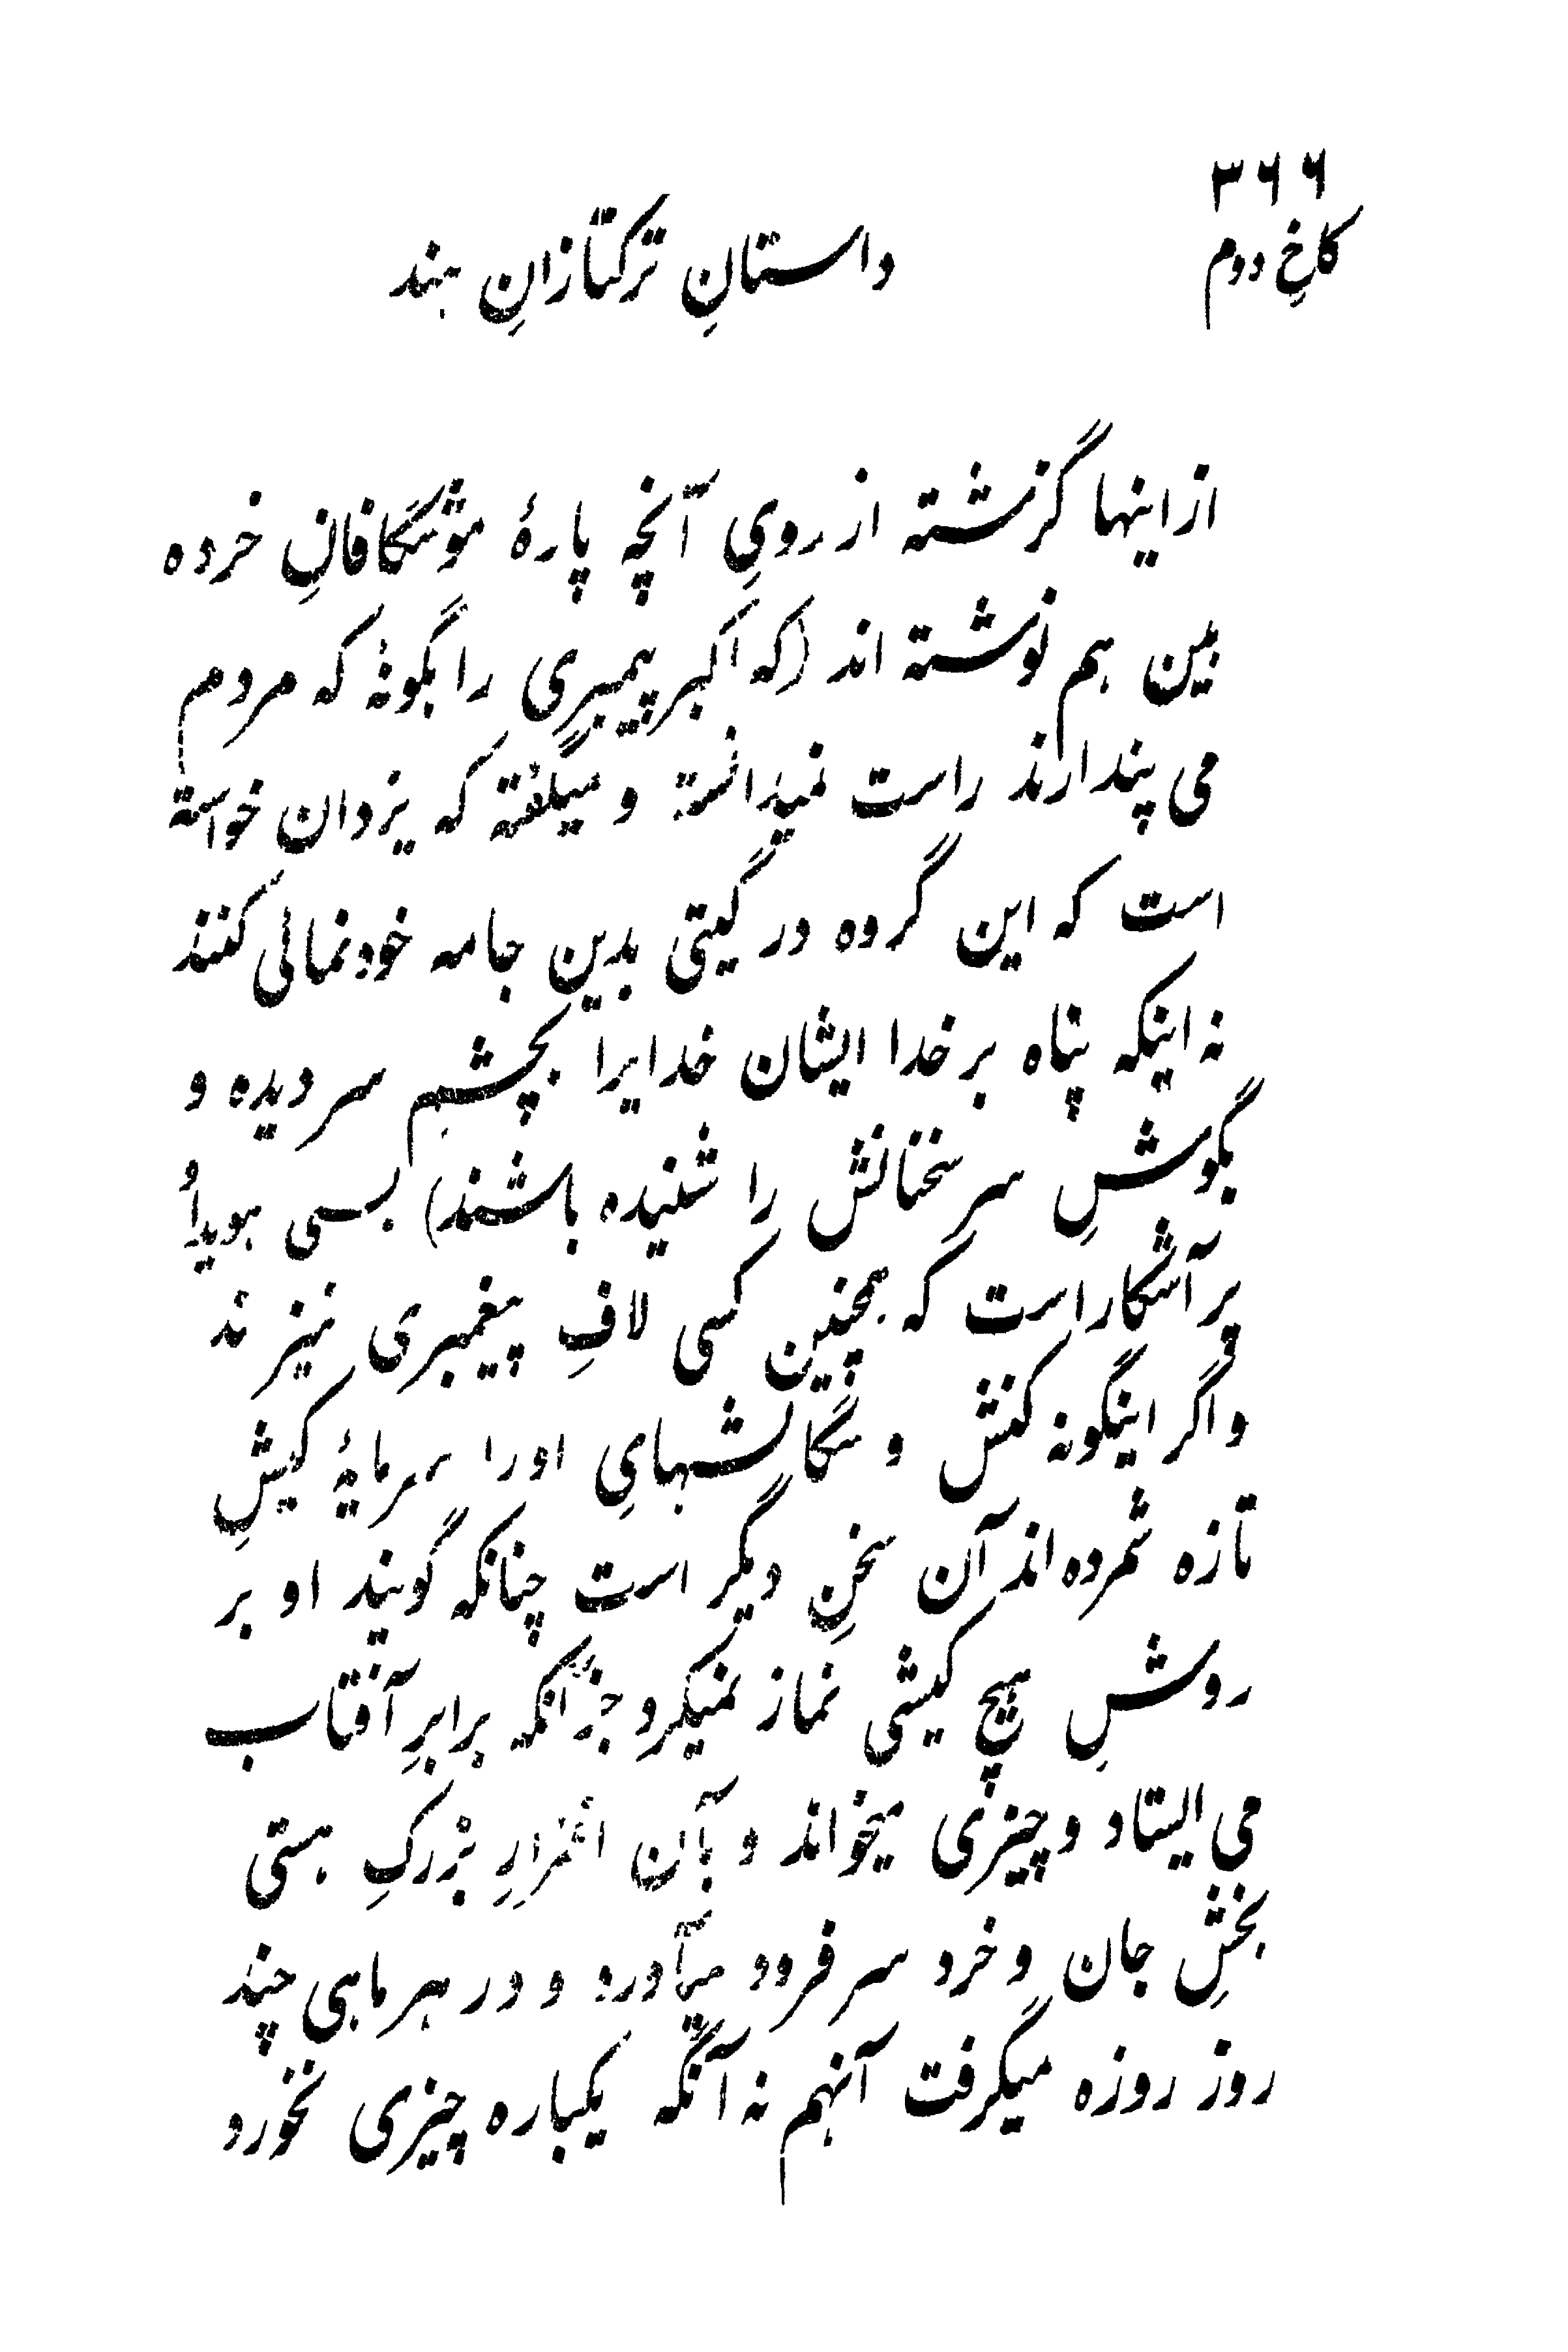 ۳۶۶
کاخِ دوم
داستانِ ترکتازانِ هند
از اینها گزشته از رویِ آنچه پارهٔ موشگافانِ خرده
بین هم نوشته اند (که اکبر پیمبری را بگونهٔ که مردم
می پندارند راست نمیدانسته و میگفته که یزدان خواسته
است که این گروه در گیتی بدین جامه خودنمائی کنند
نه اینکه پناه بر خدا ایشان خدایرا بچشمِ سر دیده و
بگوشِ سر سخنانش را شنیده باشند) بسی هویدا و
پر آشکار است که همچنین کسی لافِ پیغمبری نمیزند
و اگر اینگونه کنش و سگالشهایِ اورا سرمایهٔ کیشِ
تازه شمرده اند آن سخنِ دیگر است چنانکه گویند او بر
روشِ هیچ کیشی نماز نمیکرد جز آنکه برابرِ آفتاب
می ایستاد و چیزی میخواند و بآن افزارِ بزرکِ هستی
بخشِ جان و خرد سر فرود میآورد و در هر ماهی چند
روز روزه میگرفت آنهم نه آنگه یکباره چیزی نخورد